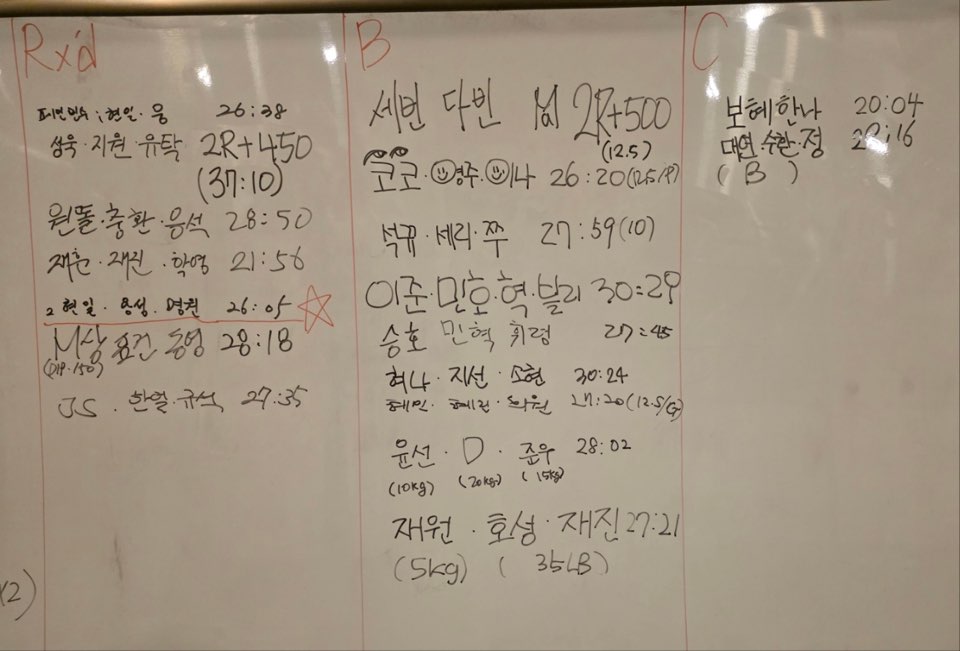 Rx'd
현일·웅 26:38
성욱·지원·유탁 2R+450
(37:10)
원똘·충환·응석 28:50
재훈·재진·학영 21:56
2 현일·용성·명권 26:05
M상 요건 동영 28:18
(DIP.150)
JS·한얼·규석 27:35
x2)
B
세빈 다빈 2R+500
(12.5)
코코·영주·나 26:20
석규·세리·쭈 27:59(10)
이준·민호·혁·빌리 30:29
승호 민혁 휘령 27:45
허나·지선·소현 30:24
혜민·혜진·희원 27:20(12.5/
윤선·D·준우 28:02
(10kg) (20kg) (15kg)
재원·호성·재진 27:21
(5kg) (35LB)
C
보혜한나 20:04
대연·수환·정 :16
(B)